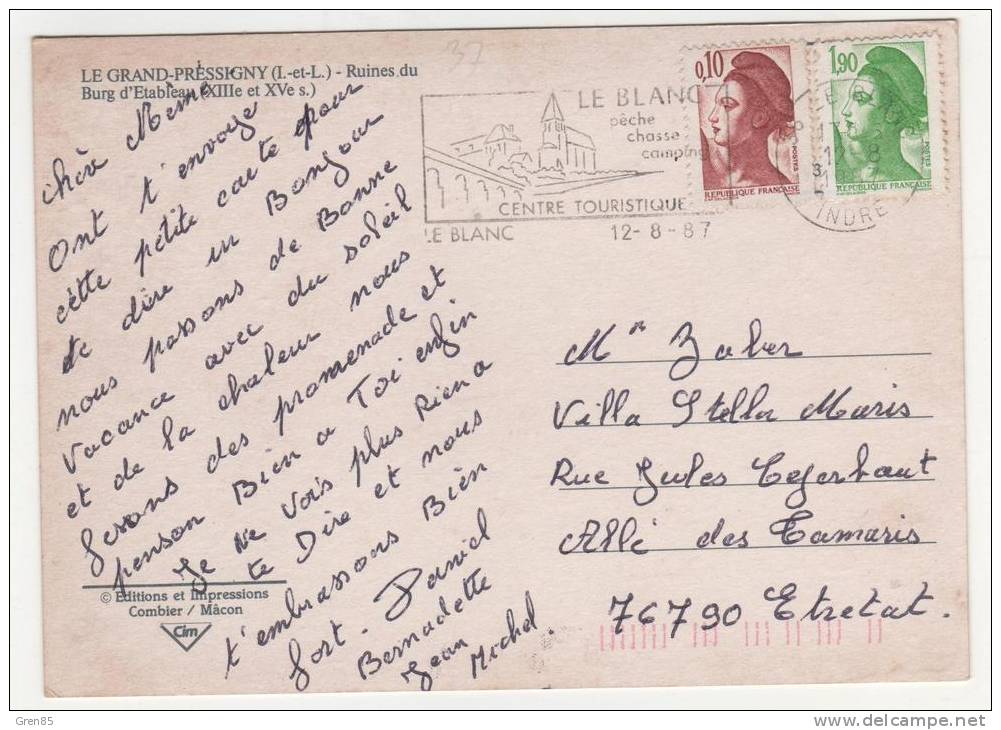 LE GRAND-PRESSIGNY (I.-et-L.) - Ruines du
Burg d'Etableau (XIIIe et XVe s.)
37
chère Mémé
Ont t'envoye
cette petite carte pour
te dire un Bonjour
nous passons de Bonne
Vacance avec du soleil
et de la chaleur nous
ferons des promenade et
penson Bien a Toi enfin
Je Ne Vois plus Rien a
te Dire et nous
t'embrassons Bien
fort. Daniel
Bernadette
Jean Michel.
© Editions et Impressions
Combier / Mâcon
Cim
LE BLANC
pêche
chasse
camping
CENTRE TOURISTIQUE
LE BLANC 12-8-87
0,10
POSTES
REPUBLIQUE FRANÇAISE
1,90
POSTES
REPUBLIQUE FRANÇAISE
INDRE
Villa Stella Maris
Rue Jules
Allé des Tamaris
76790 Etretat.
Gren85
delcampe.net